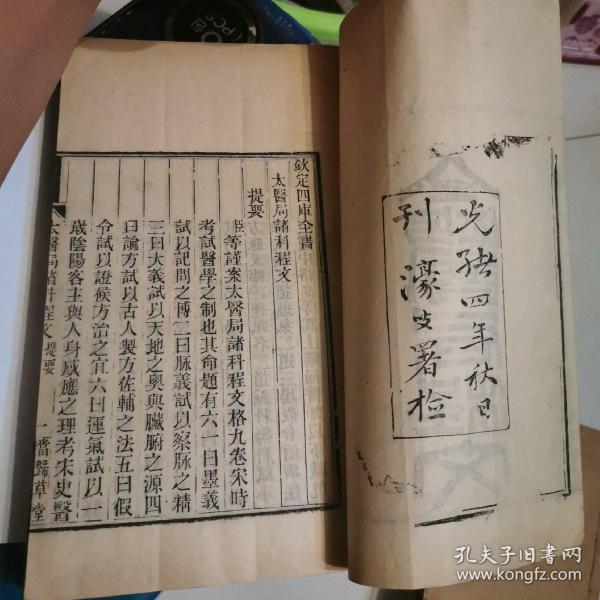 光緒四年秋日
刊 濠叟署檢
欽定四庫全書
太醫局諸科程文
提要
臣等謹案太醫局諸科程文格九卷宋時
考試醫學之制也其命題有六一曰墨義
試以記問之博二曰脉義試以察脉之精
三曰大義試以天地之奧與臟腑之源四
曰論方試以古人製方佐輔之法五曰假
令試以證候方治之宜六曰運氣試以一
歲陰陽客主與人身感應之理考宋史醫
太醫局諸科程文 提要 一 當歸草堂
孔夫子旧书网
www.kongfz.com